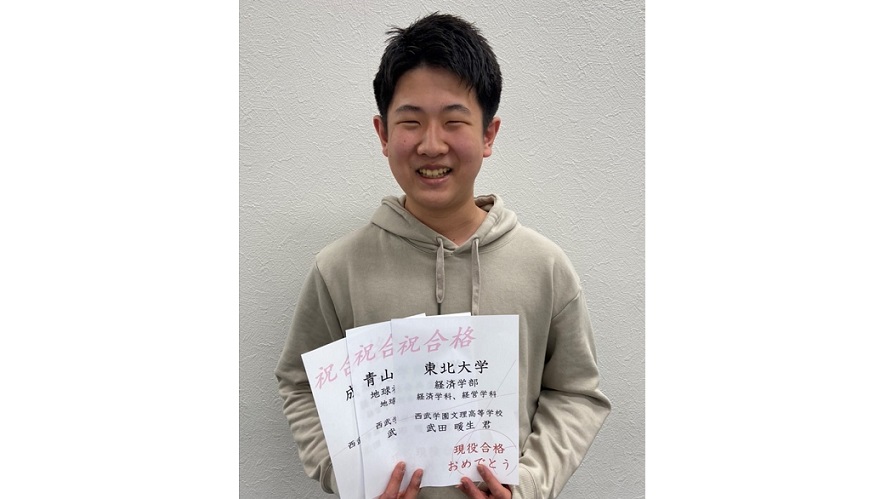 祝合
成
西武
祝合
青山
地球
地球
西武学
武
祝合格
東北大学
経済学部
経済学科、経営学科
西武学園文理高等学校
武田 暖生 君
現役合格
おめでとう